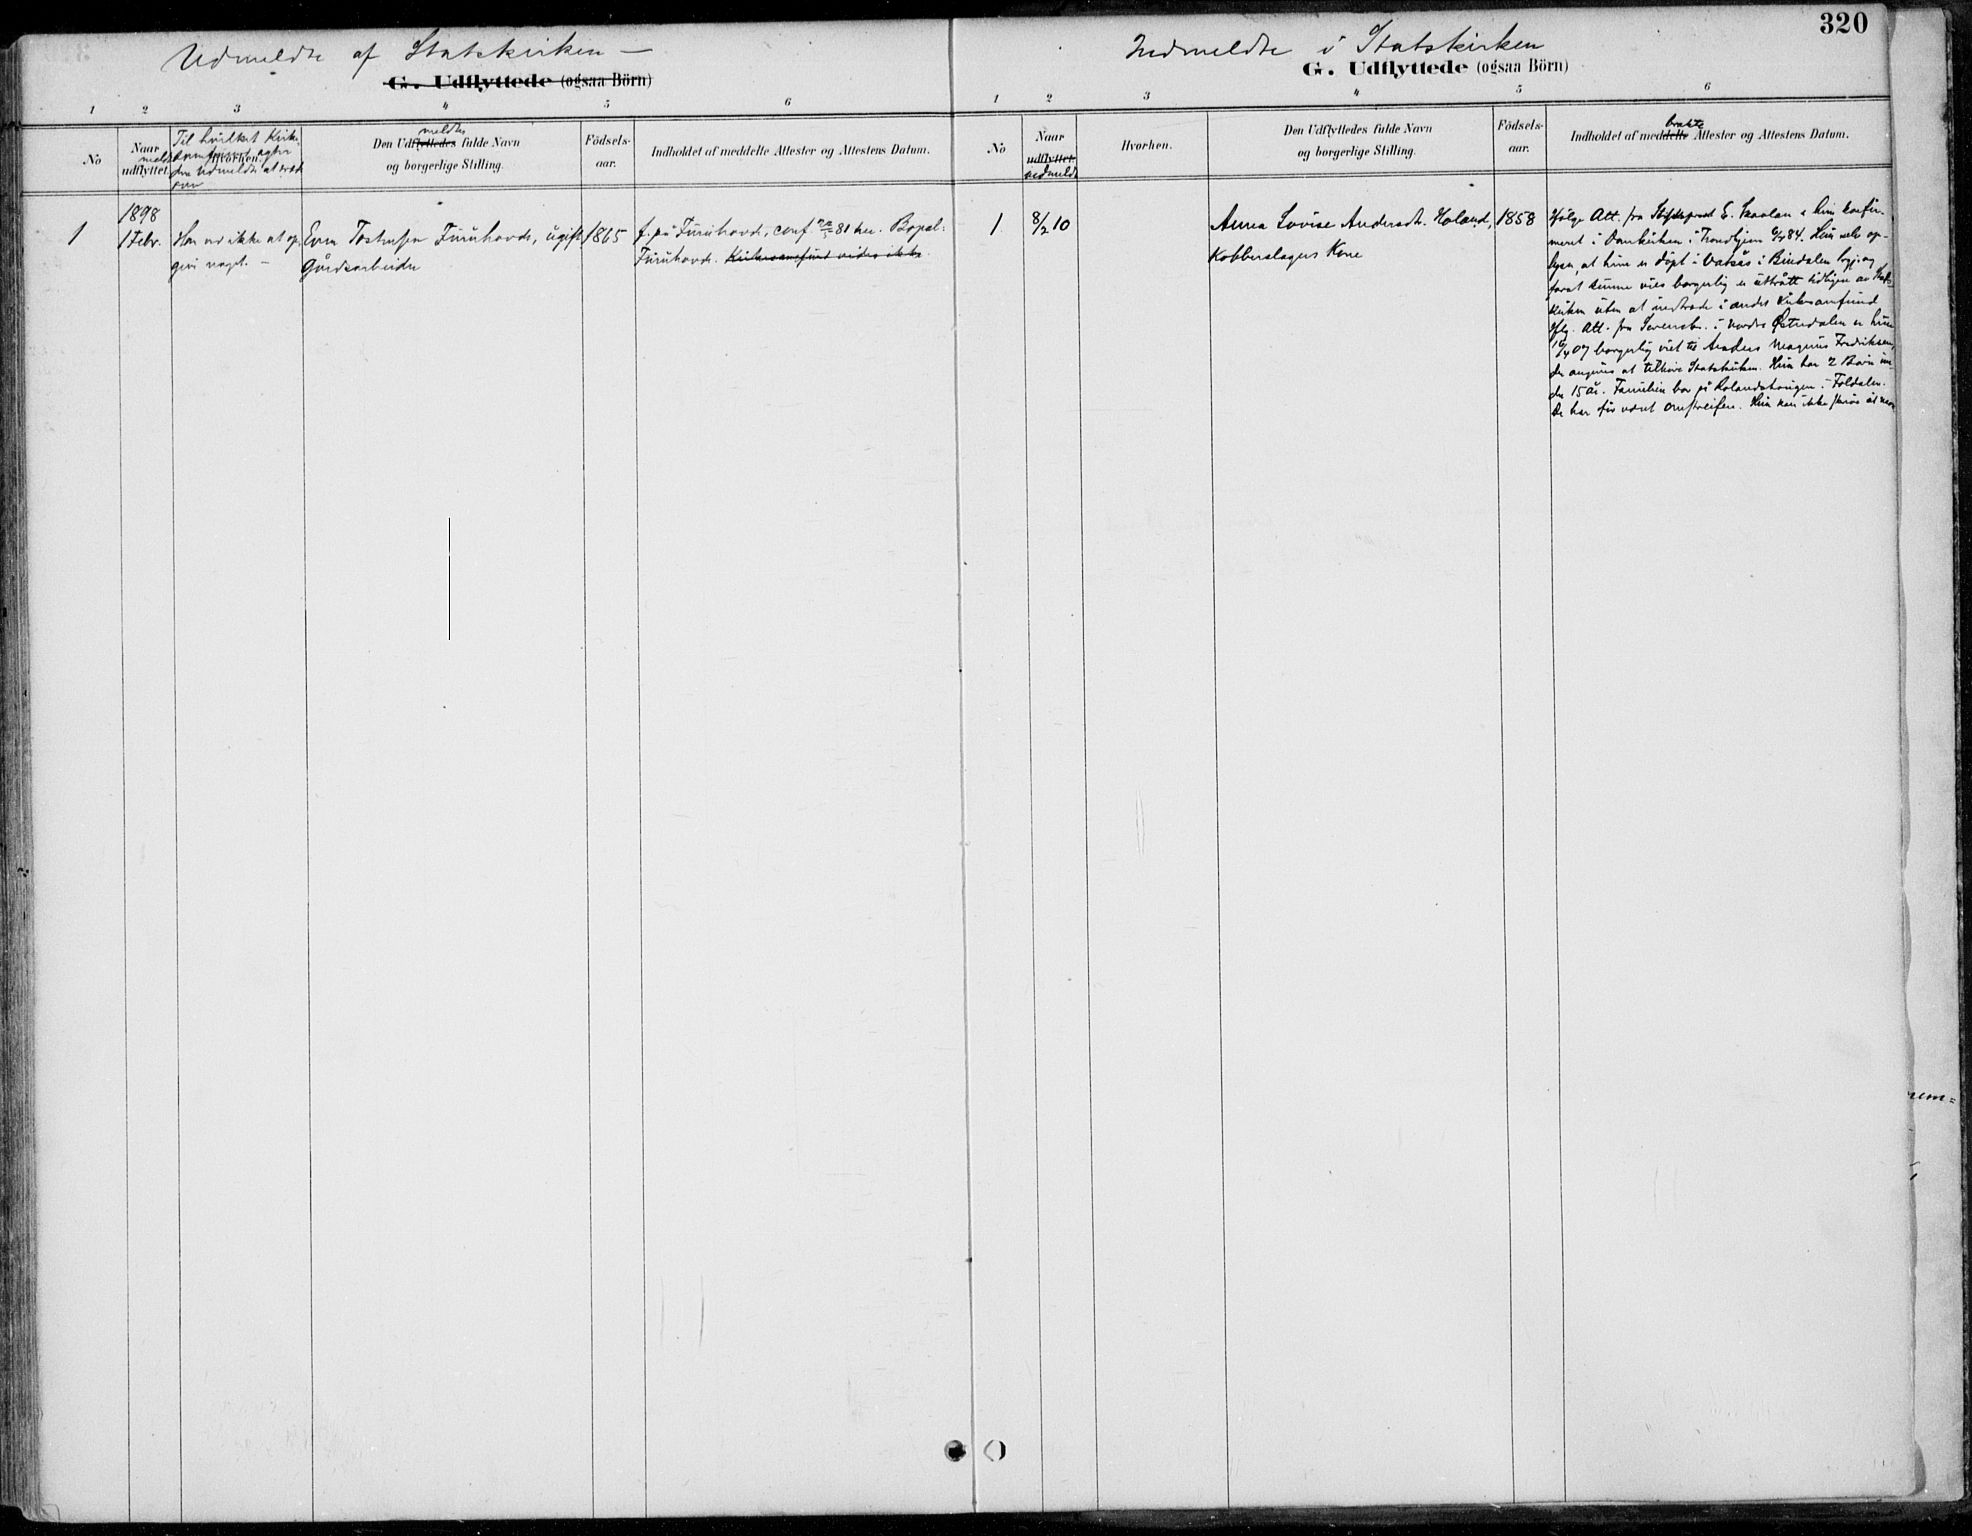 320
Udmeldte af Statskirken —
G. Udflyttede (ogsaa Börn)
1 2 3 4 5 6
No
Naar
meldt
udflyttet.
Til hvilket Kirke-
Hvorhen.
den Udmeldte at
meldtes
Den Udflyttedes fulde Navn
og borgerlige Stilling.
Födsels-
aar.
Indholdet af meddelte Attester og Attestens Datum.
1898
1 1 Febr. Han ved ikke at op
givi noget. —
Furuhovde, ugift,
Gårdsarbeider
1865
f. på Furuhovde, conf 81 her. Bopæl:
Furuhovde. Kirkesamfund vides ikke.
Indmeldte i Statskirken
G. Udflyttede (ogsaa Börn)
1 2 3 4 5 6
No
Naar
udflyttet.
indmeldt
Hvorhen.
Den Udflyttedes fulde Navn
og borgerlige Stilling.
Födsels-
aar.
bragte
Indholdet af meddelte Attester og Attestens Datum.
1 8/2 10
Anna Lovise Andersdt. Holand,
Kobberslagers Kone
1858
Ifølge Att. fra Stiftsprovst E. Skavlan er hun konfir-
meret i Domkirken i Trondhjem 84. Hun selv op-
lyser, at hun er døpt i Vatsås i Bindalen og
forat kunne vies borgerlig er utträtt tidligere av Stats-
kirken uten at indtræde i andet Kirkesamfund
Iflg. Att. fra Sorenskr. i Nordre Østerdalen er hun
07 borgerlig viet til Anders Magnus Fredriksen,
der angives at tilhøre Statskirken. Hun har 2 Børn un-
der 15 år. Familien bor på i Foldalen.
De har før været omstreifere. Hun kan ikke skrive sit navn